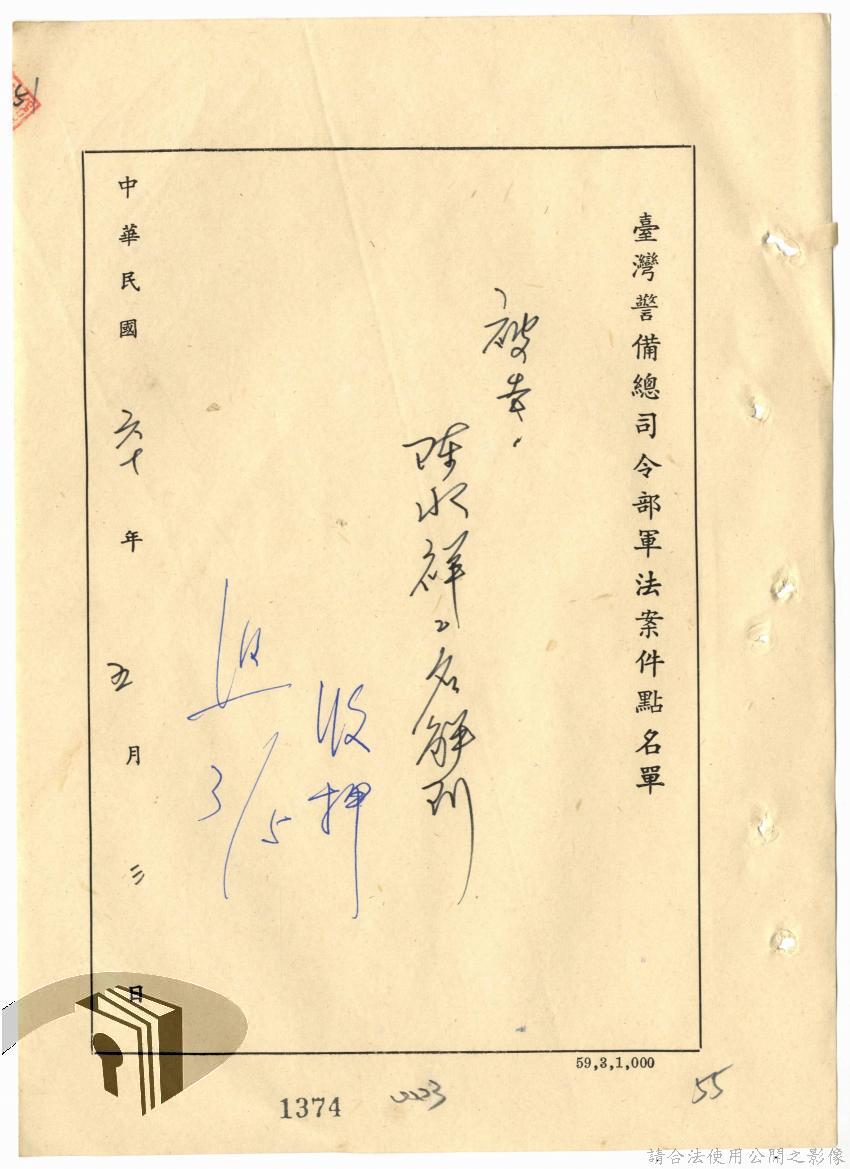 臺灣警備總司令部軍法案件點名單
被告:
陳水祥二名解到
收押
3/5
中華民國六十年五月三日
59,3,1,000
1374
55
請合法使用公開之影像